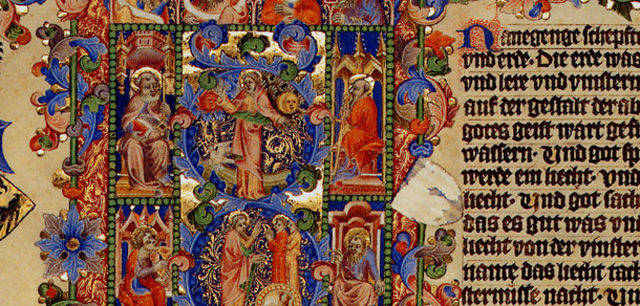 Nanegenge schepft
vnd erde. Die erde was
vnd lere vnd vinstern
auf der gestalt der ab
gotes geist wart geb
wassern. Vnd got sp
werde ein liecht. vnd
liecht. Vnd got sach
das es gut was vn
liecht von der vinster
nante das liecht tack
sternisse nacht. Vn